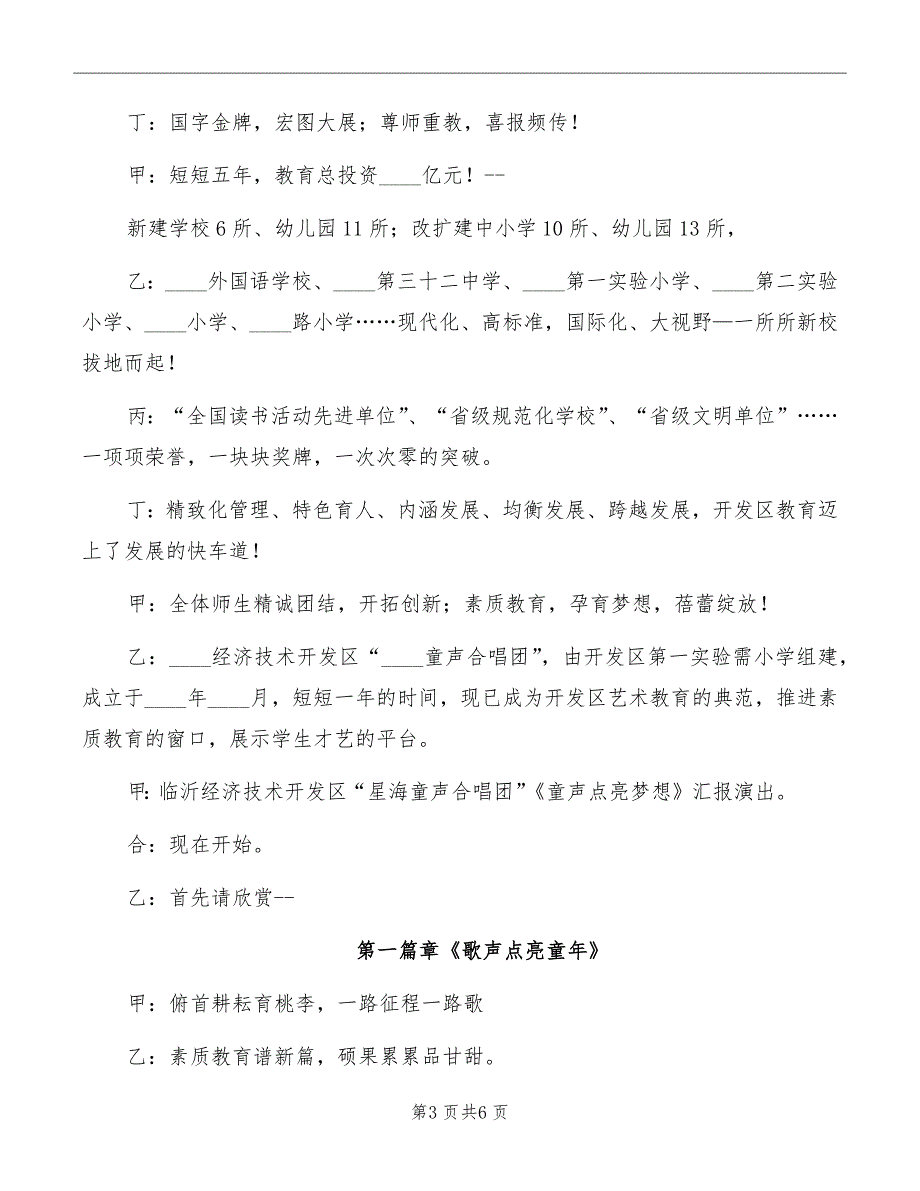 丁：国字金牌，宏图大展；尊师重教，喜报频传！
甲：短短五年，教育总投资____亿元！--
新建学校 6 所、幼儿园 11 所；改扩建中小学 10 所、幼儿园 13 所，
乙：____外国语学校、____第三十二中学、____第一实验小学、____第二实验
小学、____小学、____路小学……现代化、高标准，国际化、大视野—一所所新校
拔地而起！
丙：“全国读书活动先进单位”、“省级规范化学校”、“省级文明单位”……
一项项荣誉，一块块奖牌，一次次零的突破。
丁：精致化管理、特色育人、内涵发展、均衡发展、跨越发展，开发区教育迈
上了发展的快车道！
甲：全体师生精诚团结，开拓创新；素质教育，孕育梦想，蓓蕾绽放！
乙：____经济技术开发区“____童声合唱团”，由开发区第一实验需小学组建，
成立于____年____月，短短一年的时间，现已成为开发区艺术教育的典范，推进素
质教育的窗口，展示学生才艺的平台。
甲：临沂经济技术开发区“星海童声合唱团”《童声点亮梦想》汇报演出。
合：现在开始。
乙：首先请欣赏--
第一篇章《歌声点亮童年》
甲：俯首耕耘育桃李，一路征程一路歌
乙：素质教育谱新篇，硕果累累品甘甜。
第3 页共6 页